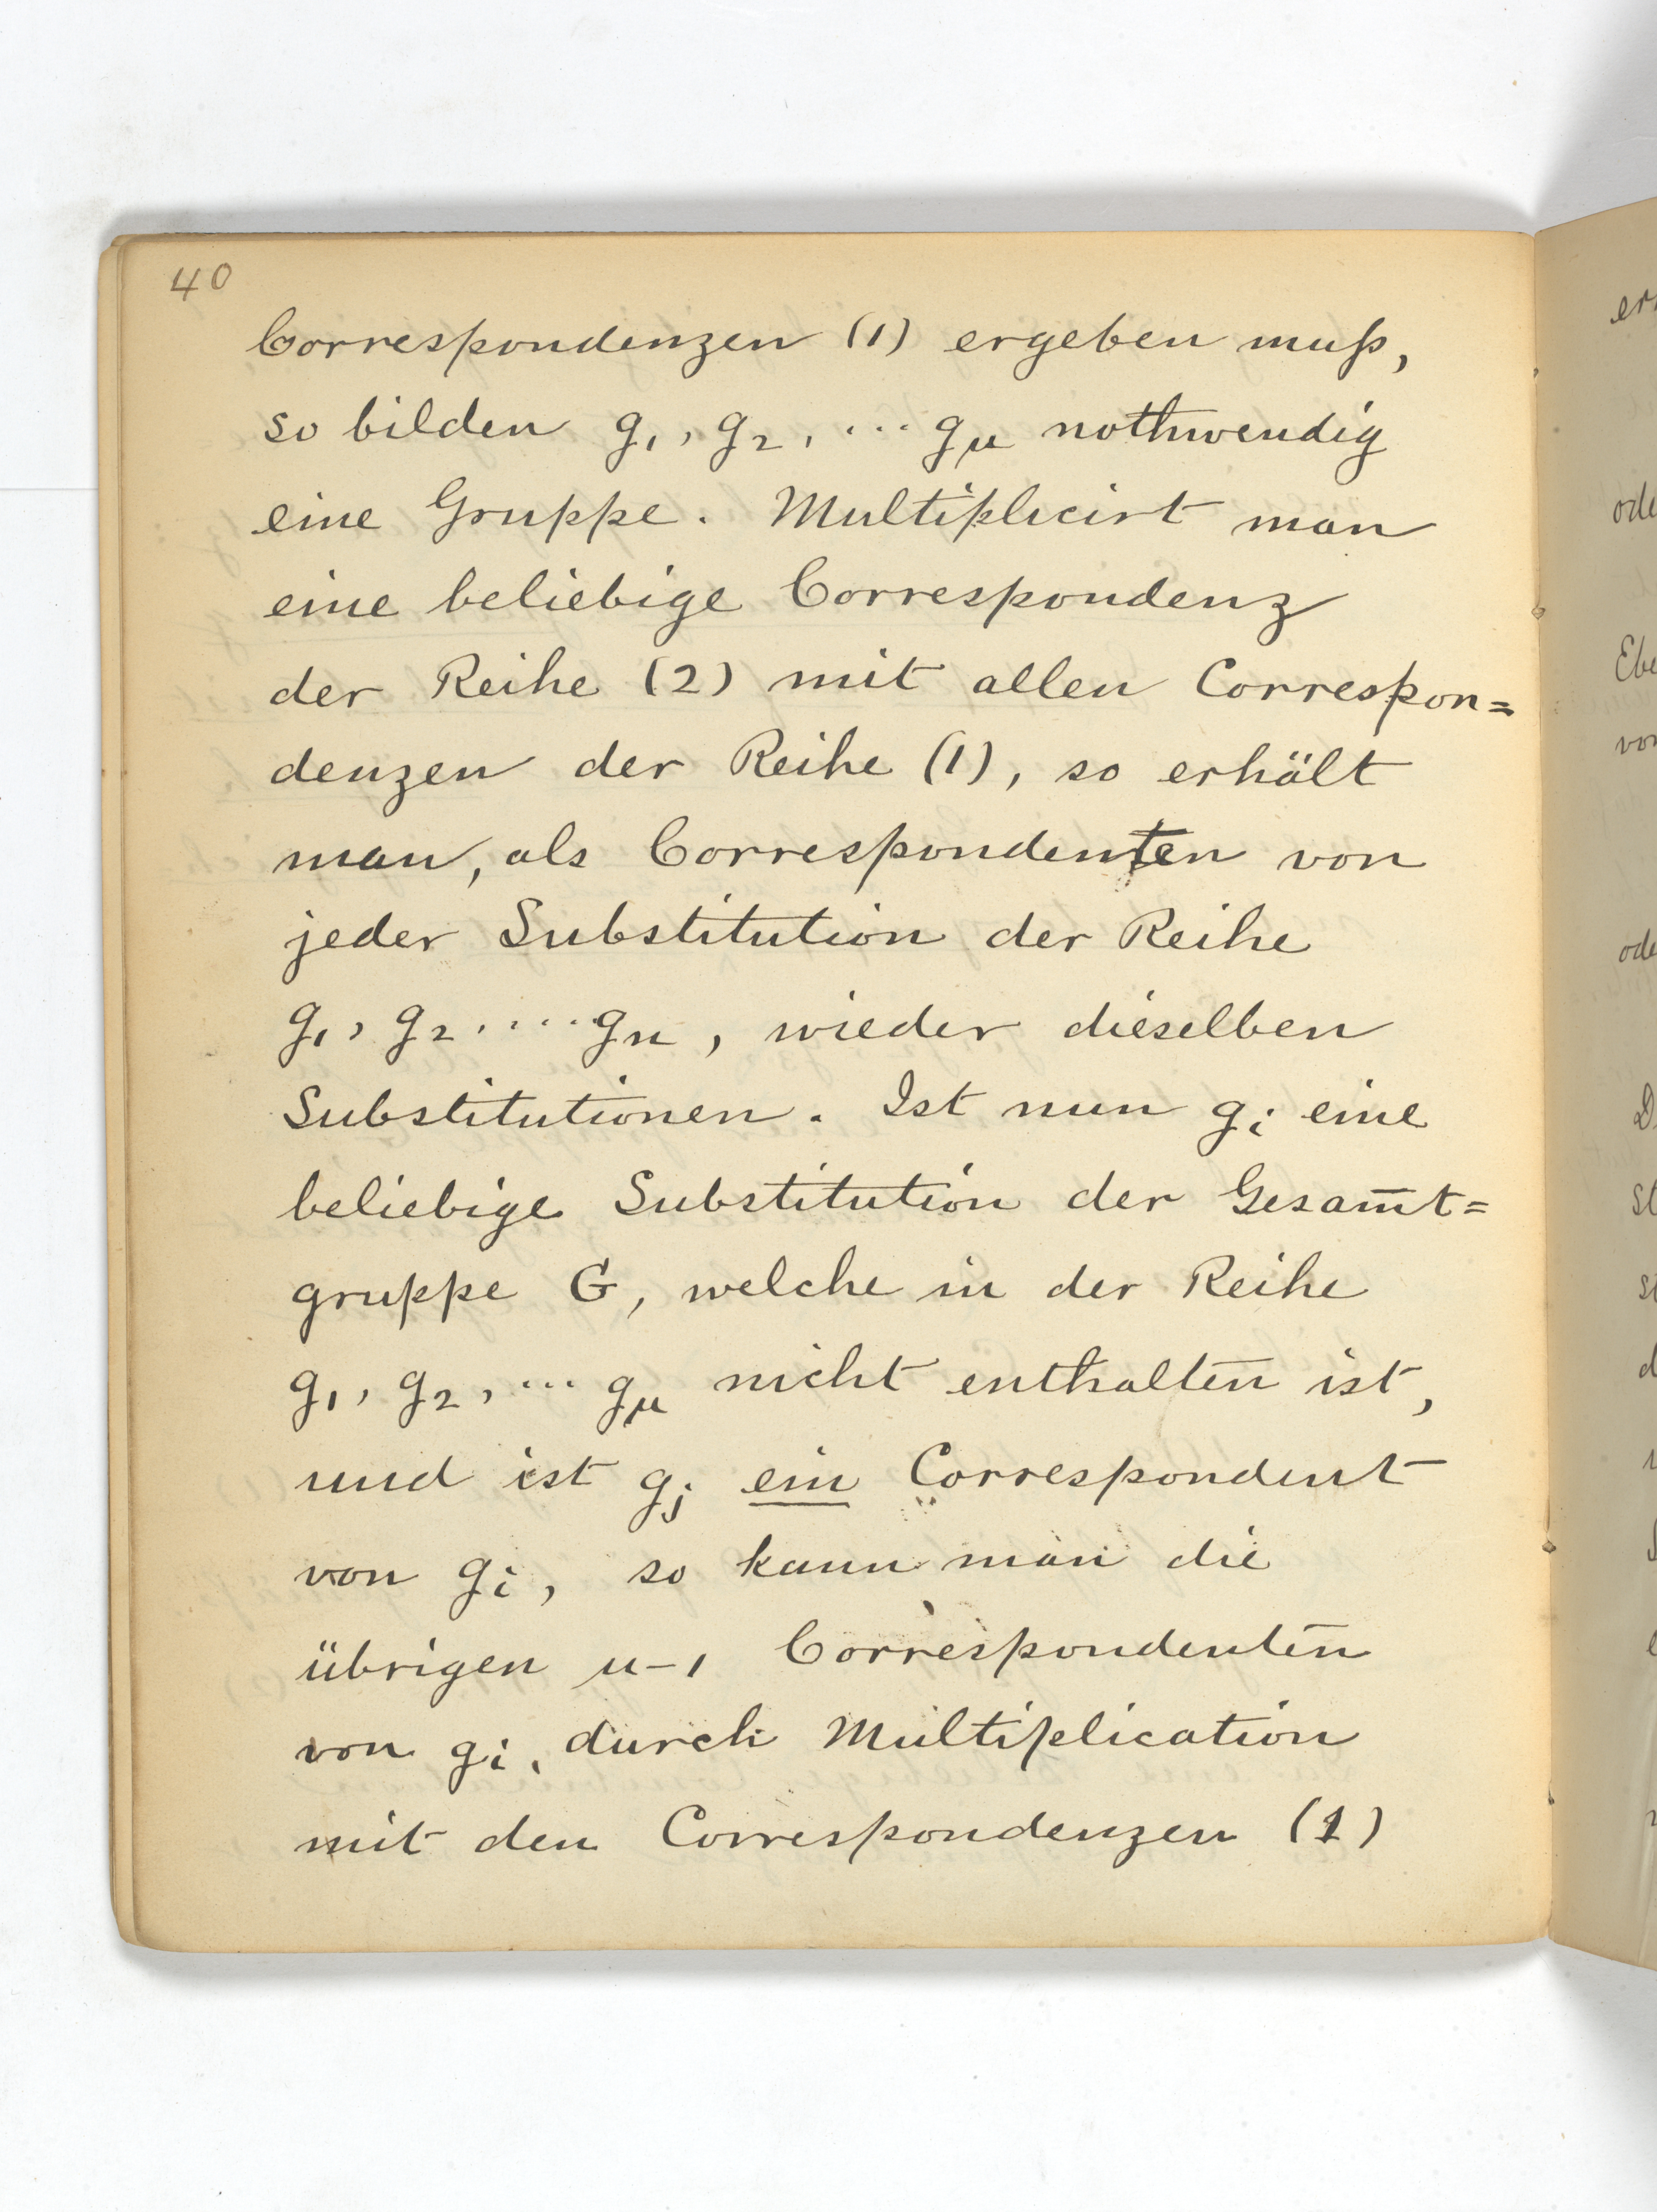 40
Correspondenzen (1) ergeben muß,
so bilden g₁, g₂, ... gμ nothwendig
eine Gruppe. Multiplicirt man
eine beliebige Correspondenz
der Reihe (2) mit allen Correspon=
denzen der Reihe (1), so erhält
man, als Correspondenten von
jeder Substitution der Reihe
g₁, g₂ .... gn, wieder dieselben
Substitutionen. Ist nun gi eine
beliebige Substitution der Gesam̅t=
gruppe G, welche in der Reihe
g₁, g₂, ... gμ nicht enthalten ist,
und ist gj ein Correspondent
von gi, so kann man die
übrigen μ-1 Correspondenten
von gi, durch Multiplication
mit den Correspondenzen (1)